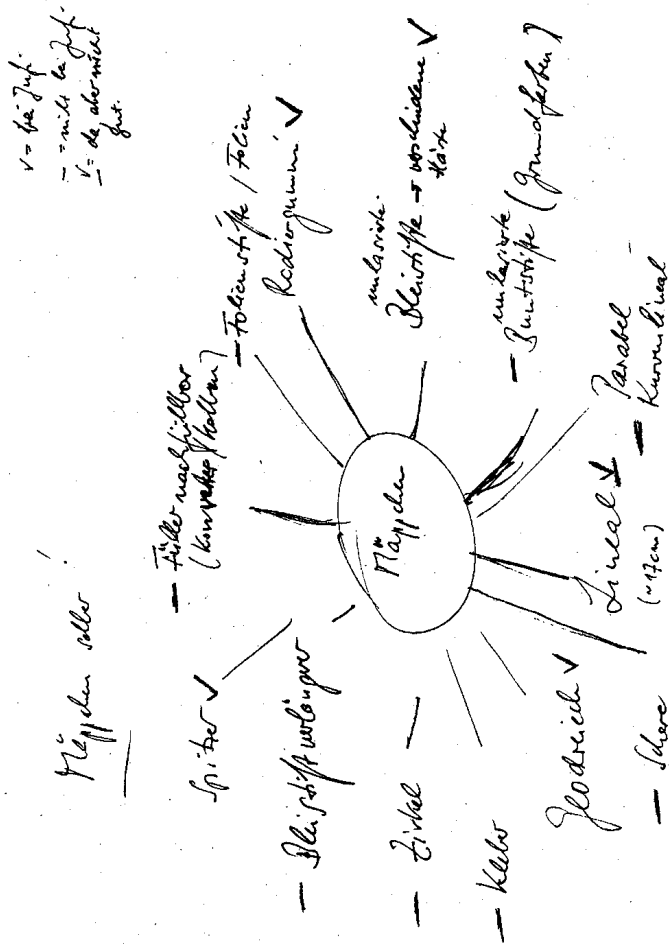 v = bei Jufi
– = nicht bei Jufi
v = da aber nicht
gut.
Mäppchen selber
– Füller nachfüllbar
(Konverter / Kolben)
– Folienstifte / Folien
Radiergummi ✓
unlasierte
Bleistifte → verschiedene ✓
Härte
unlasierte
– Buntstifte (Grundfarben)
Parabel –
– Kurvenlineal
Lineal ✓
(~17cm)
– Schere
Geodreieck ✓
– Kleber
– Zirkel
– Bleistiftverlängerer
Spitzer ✓
Mäppchen